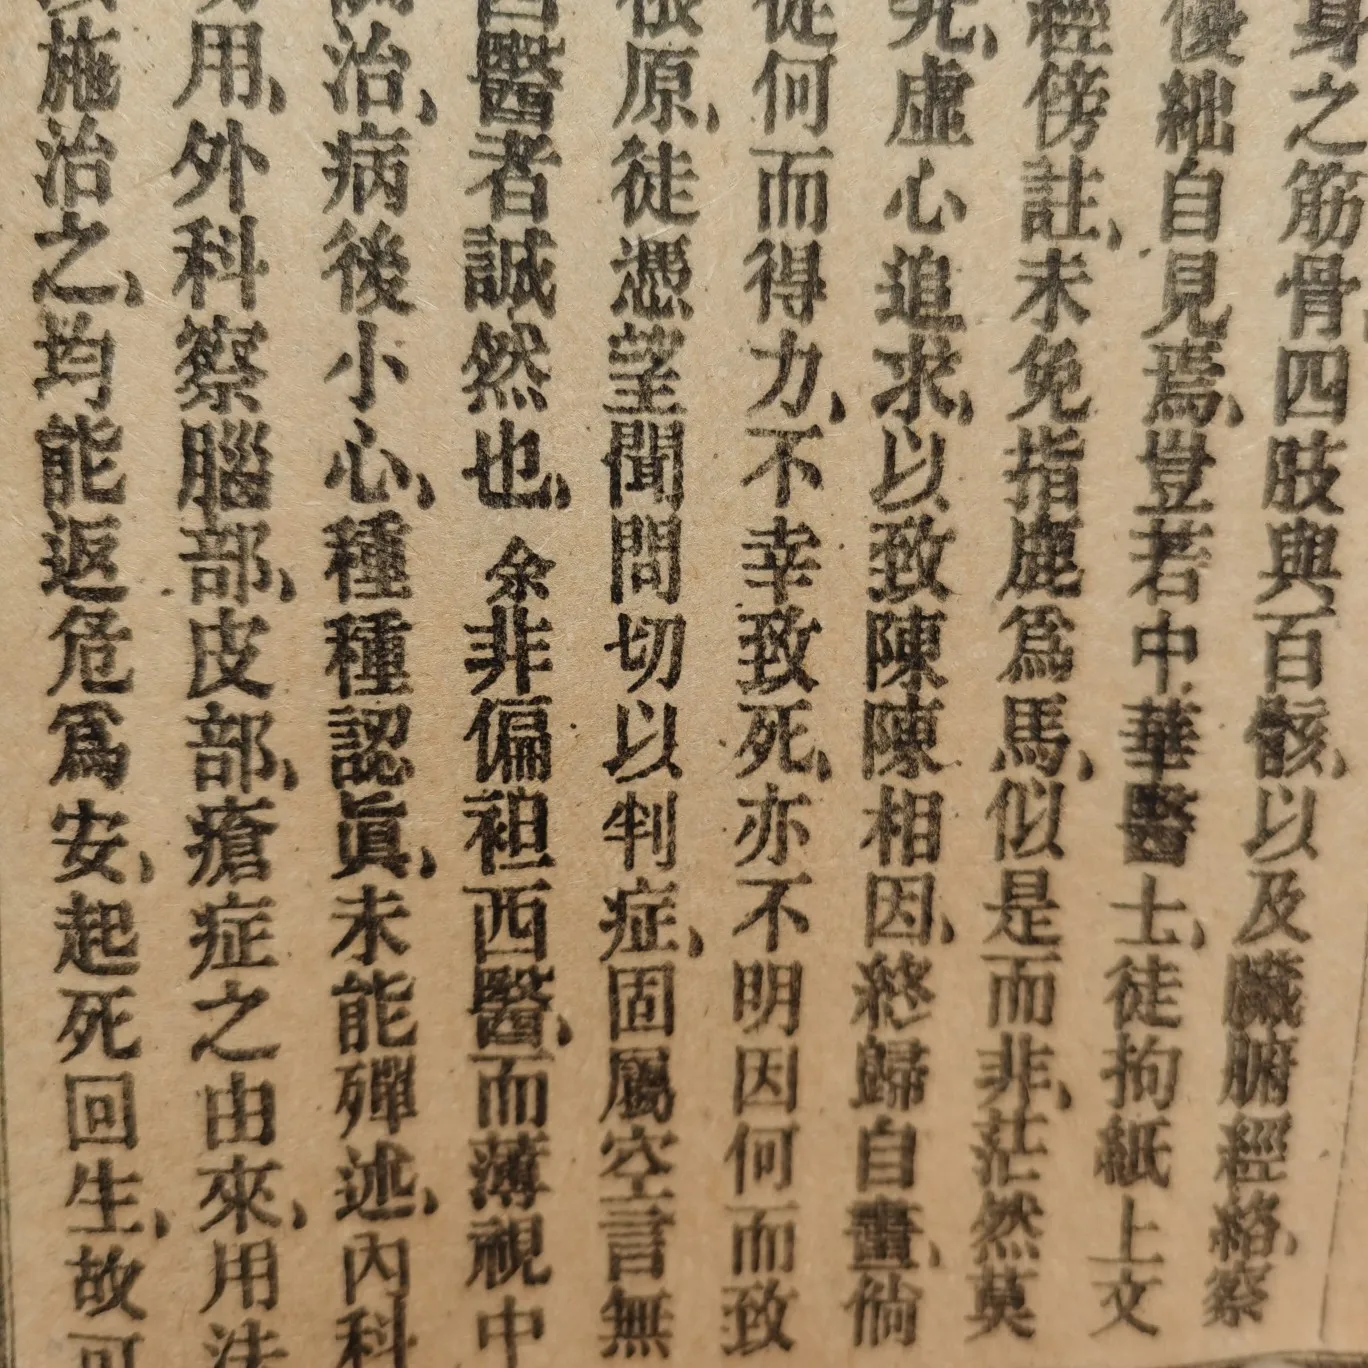 身之筋骨四肢與百骸、以及臟腑經絡、察
優絀自見焉、豈若中華醫士、徒拘紙上文
經傍註、未免指鹿爲馬、似是而非、茫然莫
究、虛心追求、以致陳陳相因、終歸自畫、倘
從何而得力、不幸致死、亦不明因何而致
根原、徒憑望聞問切以判症、固屬空言無
西醫者誠然也、余非偏袒西醫、而薄視中
治、病後小心、種種認眞、未能殫述、內科
用、外科察腦部、皮部、瘡症之由來、用法
施治之、均能返危爲安、起死回生、故可